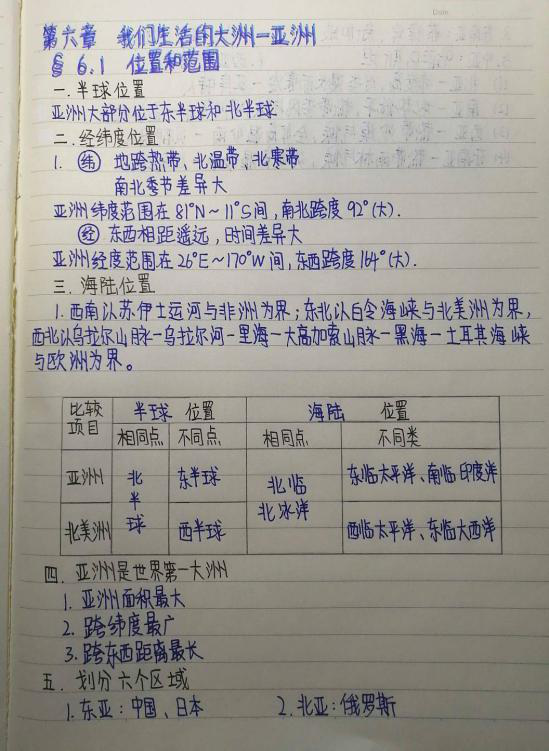 第六章 我们生活的大洲—亚洲
§ 6.1 位置和范围
一.半球位置
亚洲大部分位于东半球和北半球
二.经纬度位置
1. 纬 地跨热带、北温带、北寒带
南北季节差异大
亚洲纬度范围在81°N~11°S间,南北跨度92°(大).
经 东西相距遥远,时间差异大
亚洲经度范围在26°E~170°W间,东西跨度164°(大).
三.海陆位置
1.西南以苏伊士运河与非洲为界;东北以白令海峡与北美洲为界,
西北以乌拉尔山脉—乌拉尔河—里海—大高加索山脉—黑海—土耳其海峡
与欧洲为界。
比较项目 半球 位置 海陆 位置
相同点 不同点 相同点 不同类
亚洲 北半球 东半球 北临北冰洋 东临太平洋、南临印度洋
北美洲 西半球 西临太平洋、东临大西洋
四.亚洲是世界第一大洲
1.亚洲面积最大
2.跨纬度最广
3.跨东西距离最长
五.划分六个区域
1.东亚:中国、日本 2.北亚:俄罗斯